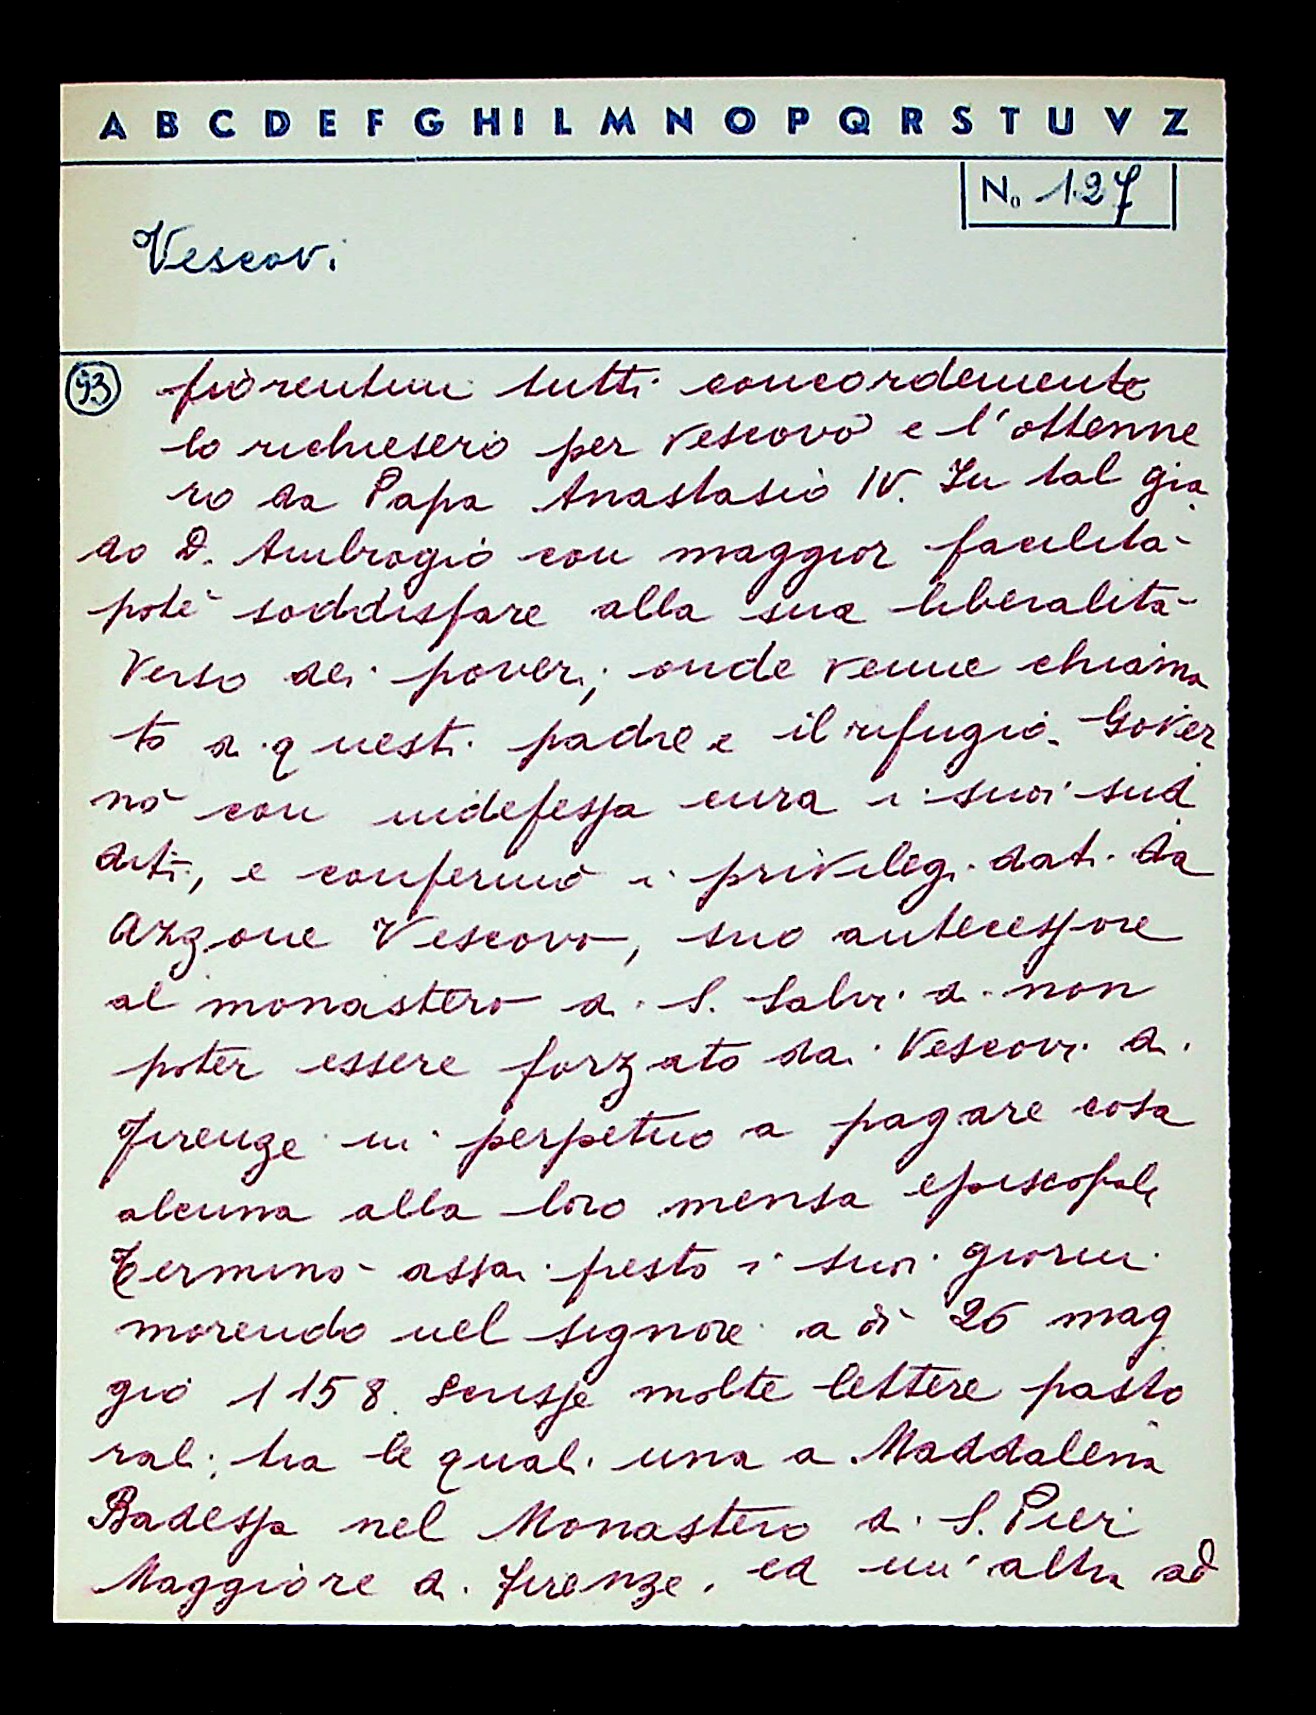 A B C D E F G H I L M N O P Q R S T U V Z
No 127
Vescovi
93 fiorentini tutti concordemente
lo richiesero per Vescovo e l'ottenne
ro da Papa Anastasio IV. In tal gra
do D. Ambrogio con maggior facilità
potè soddisfare alla sua liberalità
verso dei poveri; onde venne chiama
to di questi padre e il rifugio. Gover
nò con indefessa cura i suoi sud
diti, e confermò i privilegi dati da
Azzone Vescovo, suo antecessore
al monastero di S. Salvi di non
poter essere forzato dai Vescovi di
Firenze in perpetuo a pagare cosa
alcuna alla loro mensa episcopale
Terminò assai presto i suoi giorni
morendo nel signore a dì 26 mag
gio 1158. Scrisse molte lettere pasto
rali; tra le quali una a Maddalena
Badessa nel Monastero di S. Pier
Maggiore di Firenze, ed un'altra ad